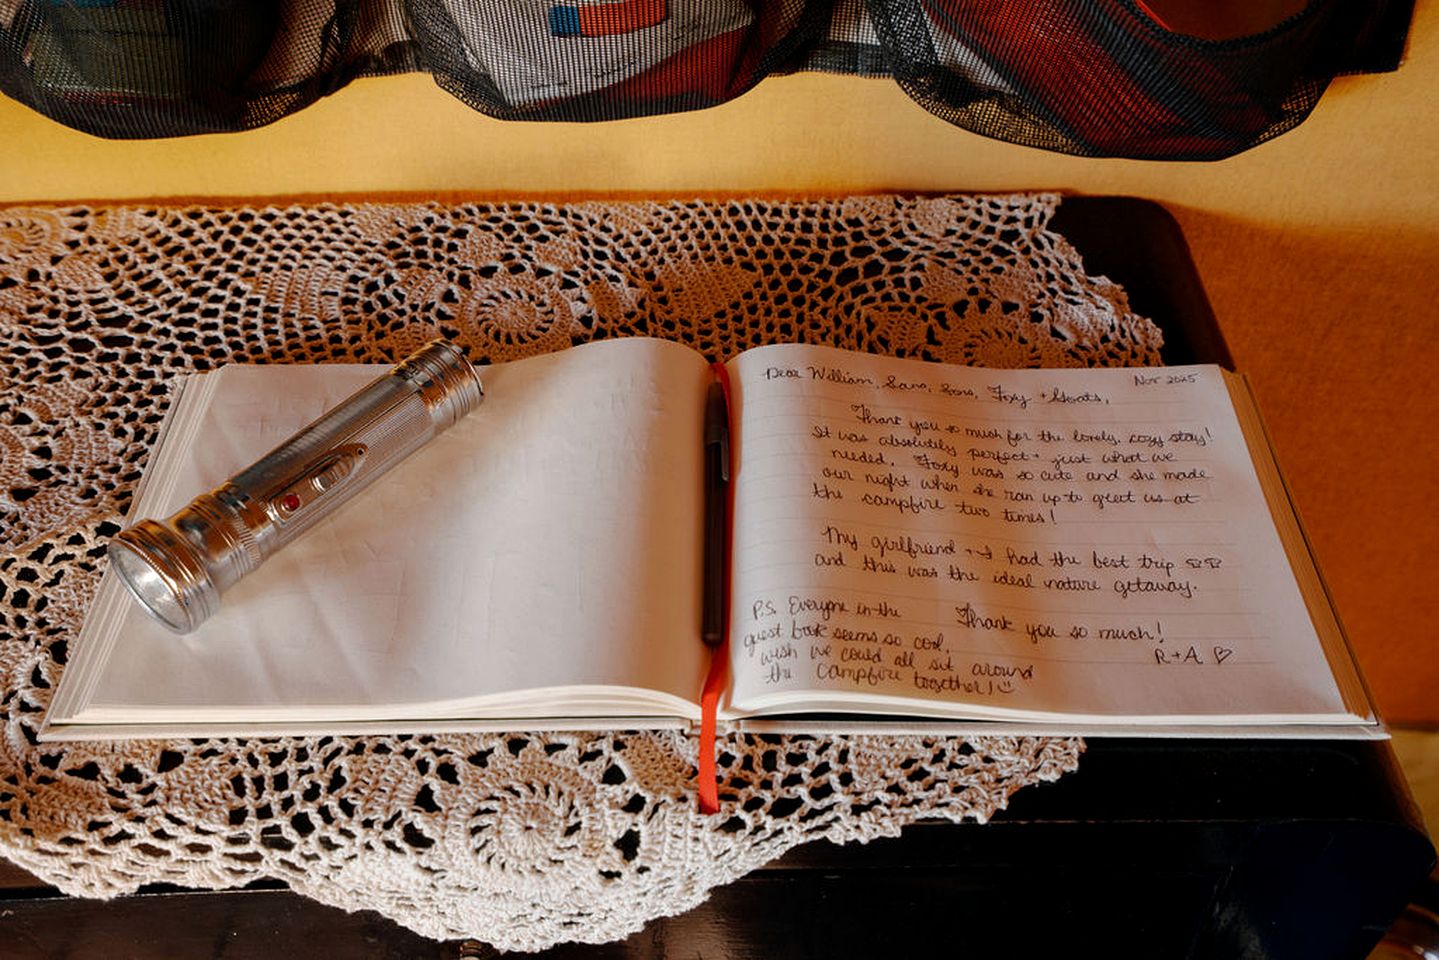 Nov 2025
Dear William, Sara, Sons, Foxy + Goats,
Thank you so much for the lovely, cozy stay!
It was absolutely perfect + just what we
needed. Foxy was so cute and she made
our night when she ran up to greet us at
the campfire two times!
My girlfriend + I had the best trip
and this was the ideal nature getaway.
Thank you so much!
R + A ♡
P.S. Everyone in the
guest book seems so cool,
wish we could all sit around
the campfire together! :)